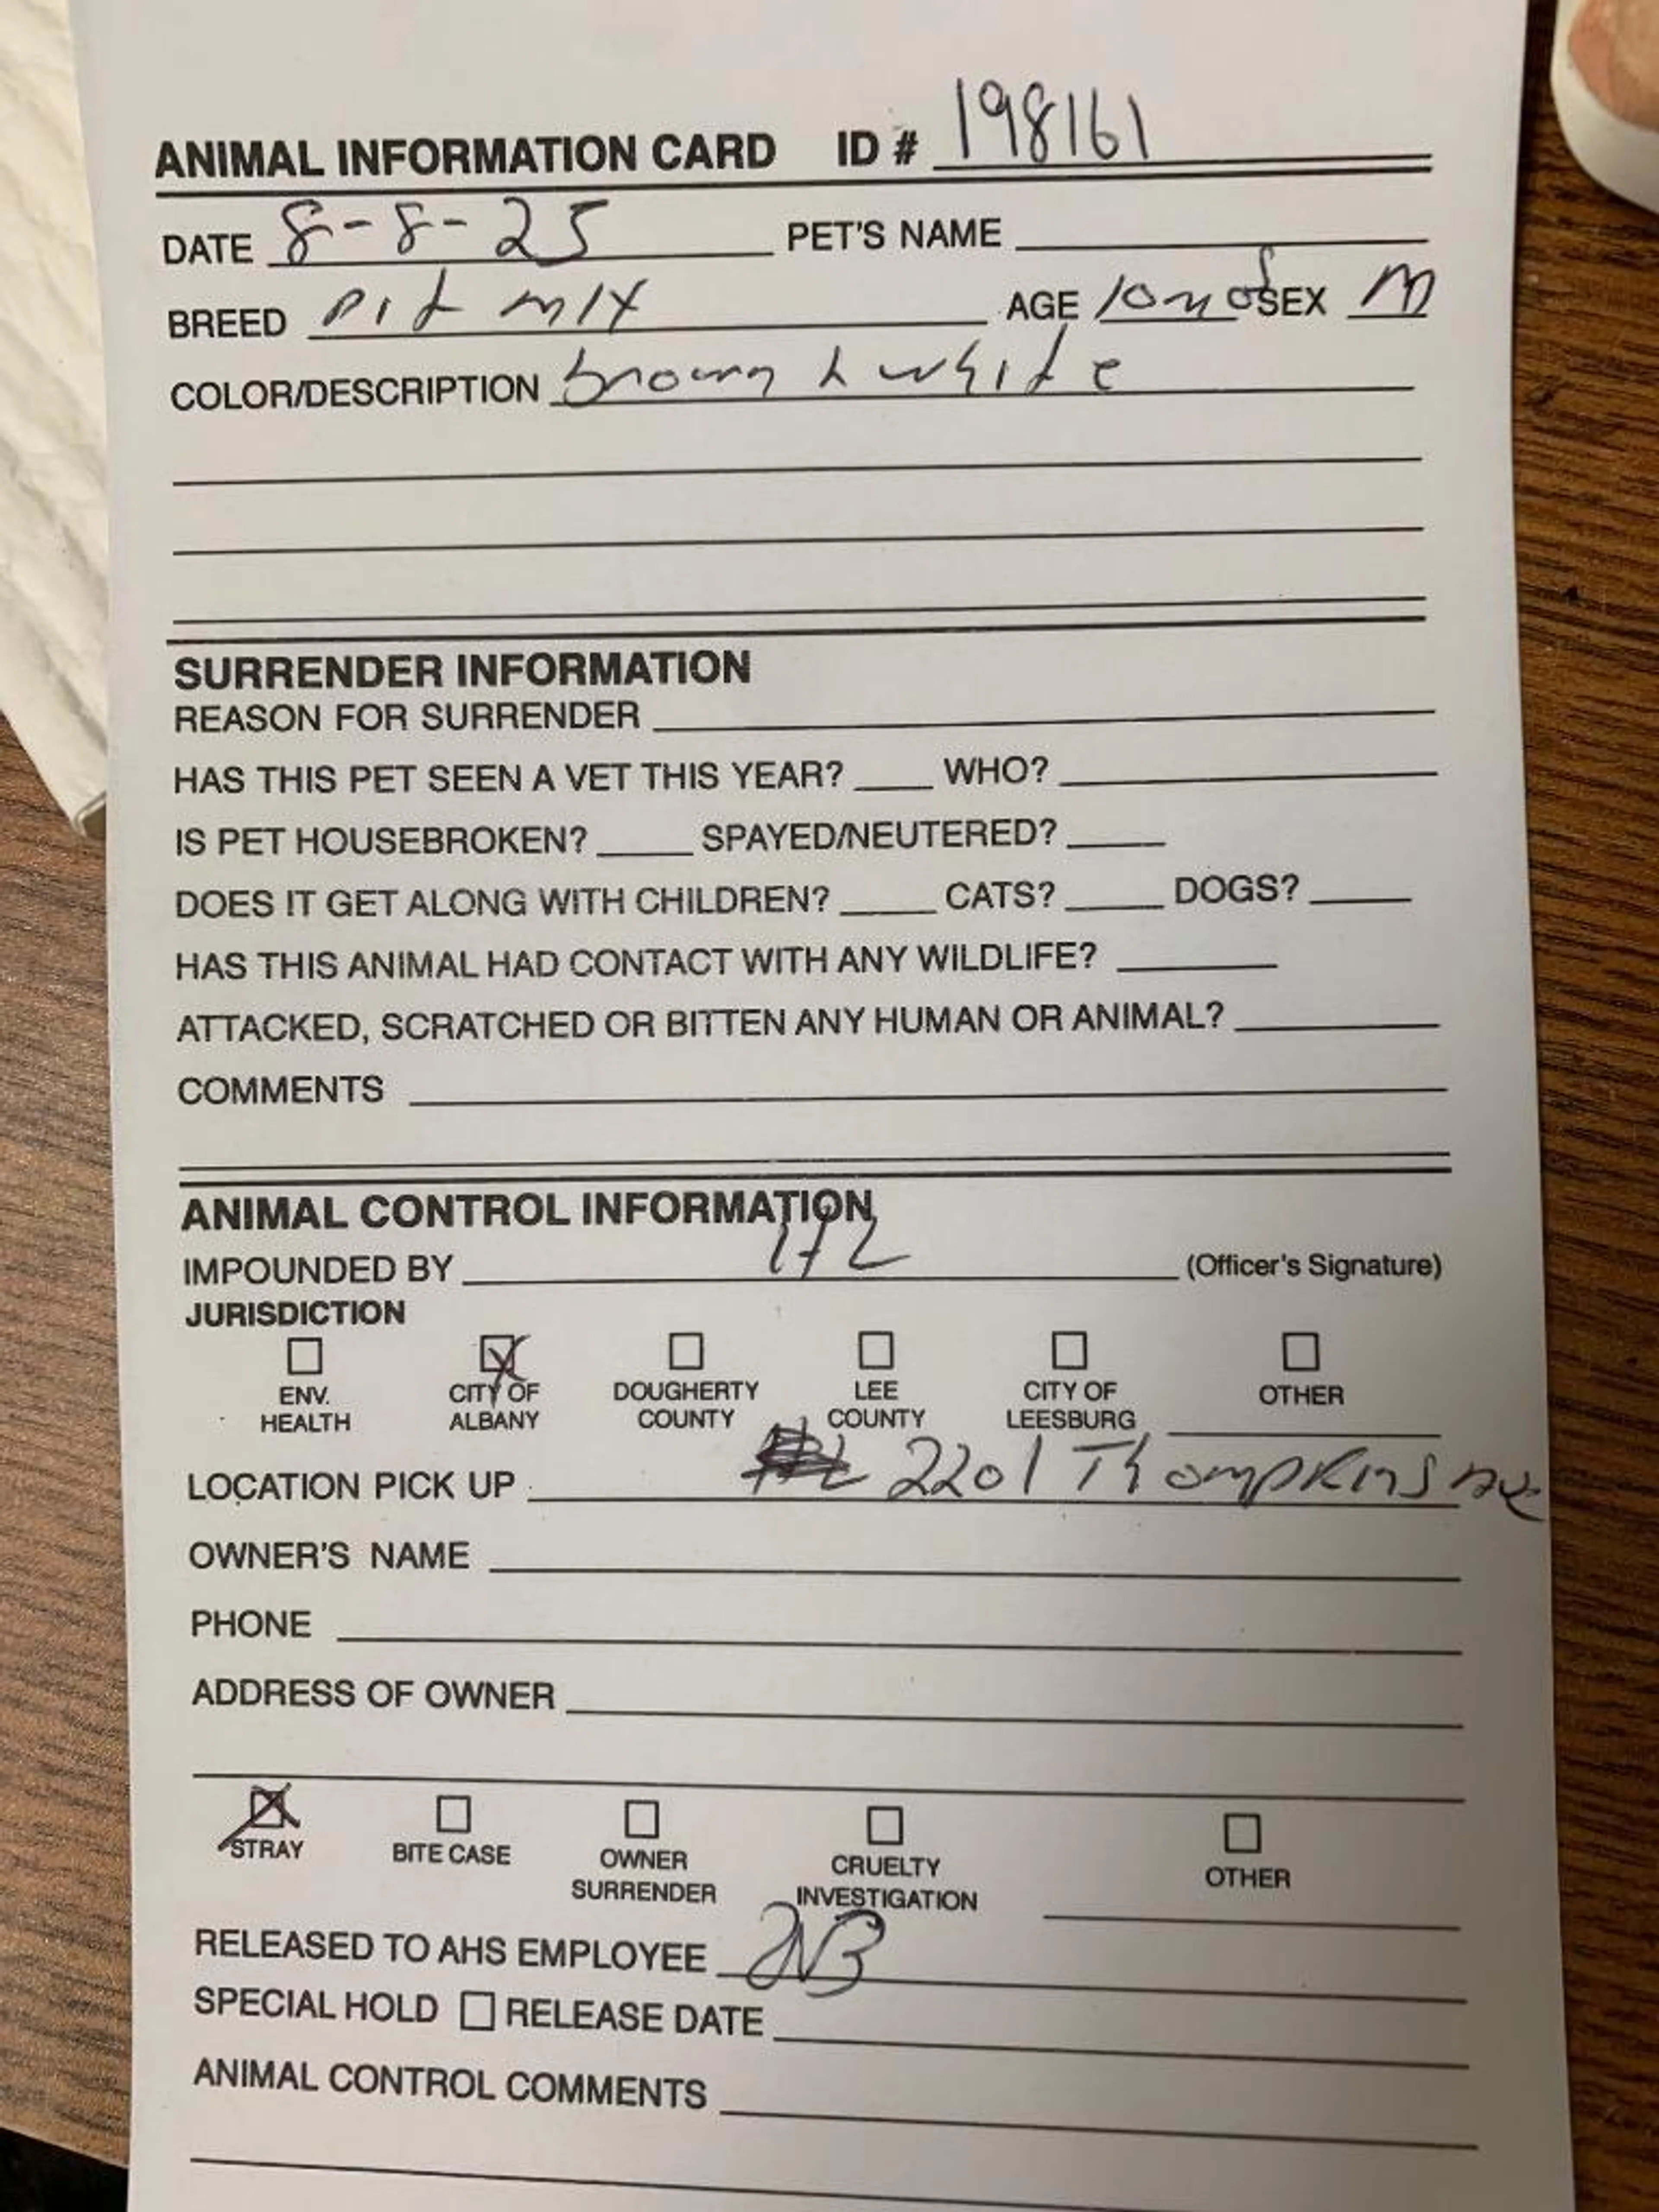 ANIMAL INFORMATION CARD ID # 198161
DATE 8-8-25 PET'S NAME
BREED pit mix AGE 10mos SEX M
COLOR/DESCRIPTION brown & white
SURRENDER INFORMATION
REASON FOR SURRENDER
HAS THIS PET SEEN A VET THIS YEAR? WHO?
IS PET HOUSEBROKEN? SPAYED/NEUTERED?
DOES IT GET ALONG WITH CHILDREN? CATS? DOGS?
HAS THIS ANIMAL HAD CONTACT WITH ANY WILDLIFE?
ATTACKED, SCRATCHED OR BITTEN ANY HUMAN OR ANIMAL?
COMMENTS
ANIMAL CONTROL INFORMATION
IMPOUNDED BY (Officer's Signature)
JURISDICTION
ENV. HEALTH CITY OF ALBANY DOUGHERTY COUNTY LEE COUNTY CITY OF LEESBURG OTHER
LOCATION PICK UP 2201 Thompkins Ave
OWNER'S NAME
PHONE
ADDRESS OF OWNER
STRAY BITE CASE OWNER SURRENDER CRUELTY INVESTIGATION OTHER
RELEASED TO AHS EMPLOYEE
SPECIAL HOLD RELEASE DATE
ANIMAL CONTROL COMMENTS